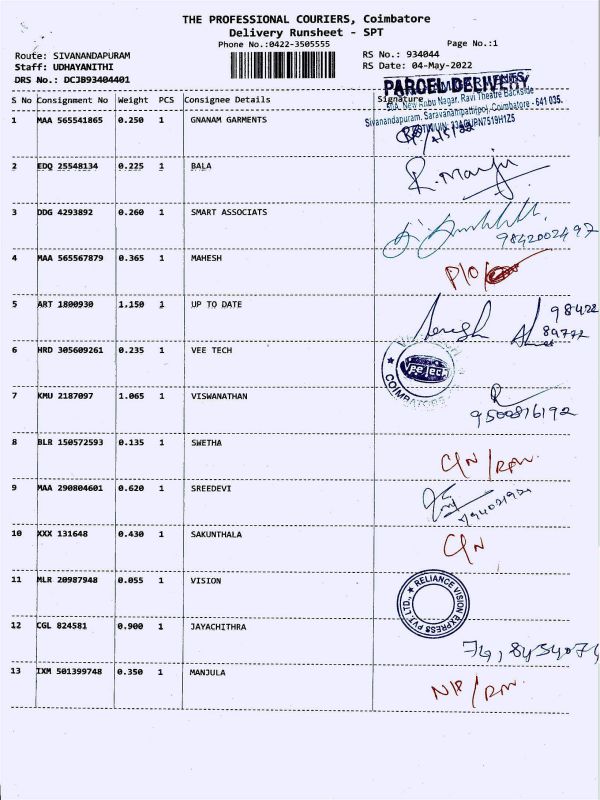 THE PROFESSIONAL COURIERS, Coimbatore
Delivery Runsheet - SPT
Phone No.:0422-3505555 Page No.:1
Route: SIVANANDAPURAM RS No.: 934044
Staff: UDHAYANITHI RS Date: 04-May-2022
DRS No.: DCJB93404401
PARCEL DELIVERY
Nagar, Ravi Theatre Backside
Sivanandapuram, Saravanampatti(po), Coimbatore - 641 035.
S No Consignment No Weight PCS Consignee Details Signature
1 MAA 565541865 0.250 1 GNANAM GARMENTS
2 EDQ 25548134 0.225 1 BALA R. Manju
3 DDG 4293892 0.260 1 SMART ASSOCIATS
9842002497
4 MAA 565567879 0.365 1 MAHESH P/O/
5 ART 1800930 1.150 1 UP TO DATE 98422
89772
6 HRD 305609261 0.235 1 VEE TECH Vee Tech
COIMBATORE
7 KMU 2187097 1.065 1 VISWANATHAN
9500816192
8 BLR 150572593 0.135 1 SWETHA
C/N
9 MAA 290804601 0.620 1 SREEDEVI
10 XXX 131648 0.430 1 SAKUNTHALA C/N
11 MLR 20987948 0.055 1 VISION RELIANCE VISION EXPRESS PVT LTD.,
12 CGL 824581 0.900 1 JAYACHITHRA
13 IXM 501399748 0.350 1 MANJULA